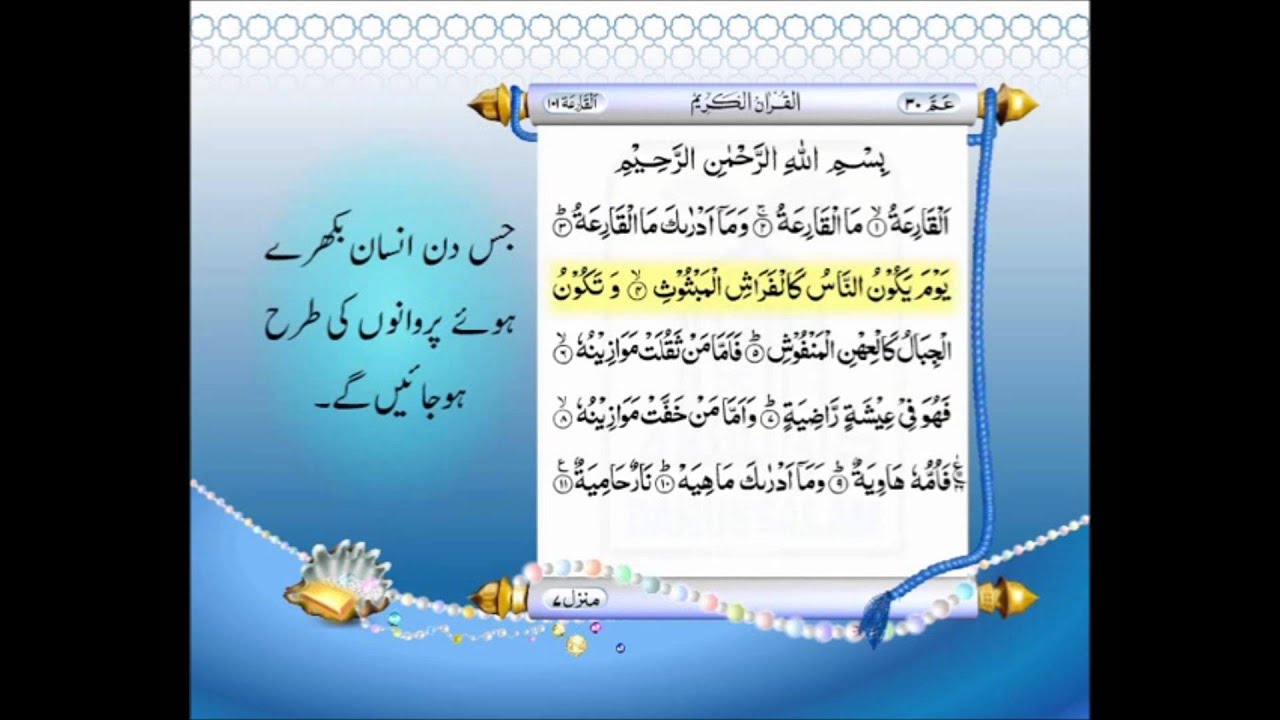 عَمَّ ۳۰
القرآن الكريم
اَلْقَارِعَة ۱۰۱
بِسْمِ اللّٰهِ الرَّحْمٰنِ الرَّحِيْمِ
اَلْقَارِعَةُ ۙ۱ مَا الْقَارِعَةُ ۚ۲ وَمَاۤ اَدْرٰىكَ مَا الْقَارِعَةُ ؕ۳
يَوْمَ يَكُوْنُ النَّاسُ كَالْفَرَاشِ الْمَبْثُوْثِ ۙ۴ وَ تَكُوْنُ
الْجِبَالُ كَالْعِهْنِ الْمَنْفُوْشِ ؕ۵ فَاَمَّا مَنْ ثَقُلَتْ مَوَازِيْنُهٗ ۙ۶
فَهُوَ فِيْ عِيْشَةٍ رَّاضِيَةٍ ؕ۷ وَاَمَّا مَنْ خَفَّتْ مَوَازِيْنُهٗ ۙ۸
فَاُمُّهٗ هَاوِيَةٌ ؕ۹ وَمَاۤ اَدْرٰىكَ مَا هِيَهْ ؕ۱۰ نَارٌ حَامِيَةٌ ۱۱ ع
منزل ۷
جس دن انسان بکھرے
ہوئے پروانوں کی طرح
ہوجائیں گے۔